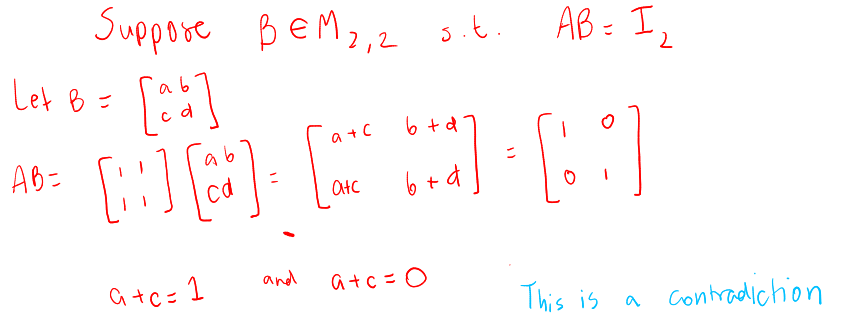 Suppose B ∈ M2,2 s.t. AB = I2
Let B = [a b; c d]
AB = [1 1; 1 1] [a b; c d] = [a+c b+d; a+c b+d] = [1 0; 0 1]
a+c = 1 and a+c = 0 This is a contradiction